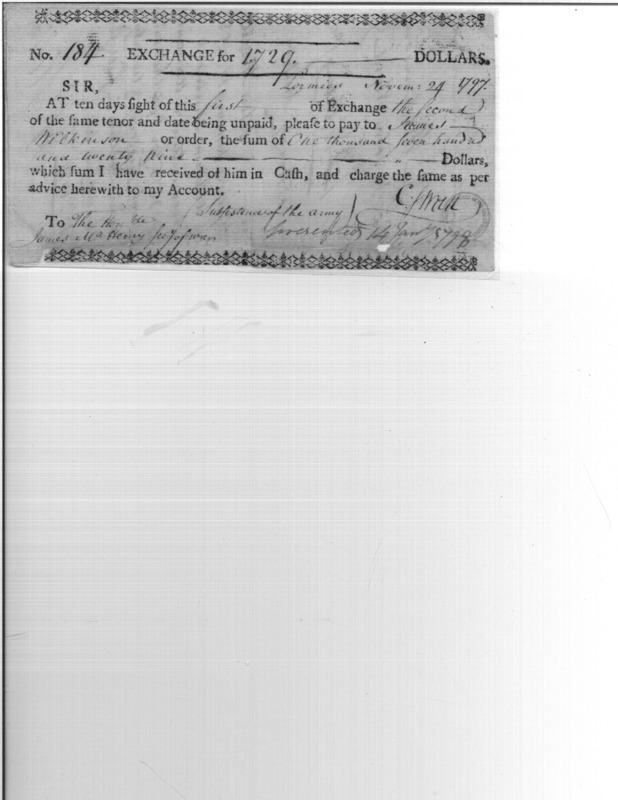 No. 184 EXCHANGE for 1729. DOLLARS.
Novem: 24 1797.
SIR,
AT ten days sight of this first of Exchange the second
of the same tenor and date being unpaid, please to pay to James
Wilkinson or order, the sum of One thousand seven hundred
and twenty nine Dollars,
which sum I have received of him in Cash, and charge the same as per
advice herewith to my Account.
Subsistence of the army
To The Honble
James McHenry Secy of war
Presented 14 Jany 1798